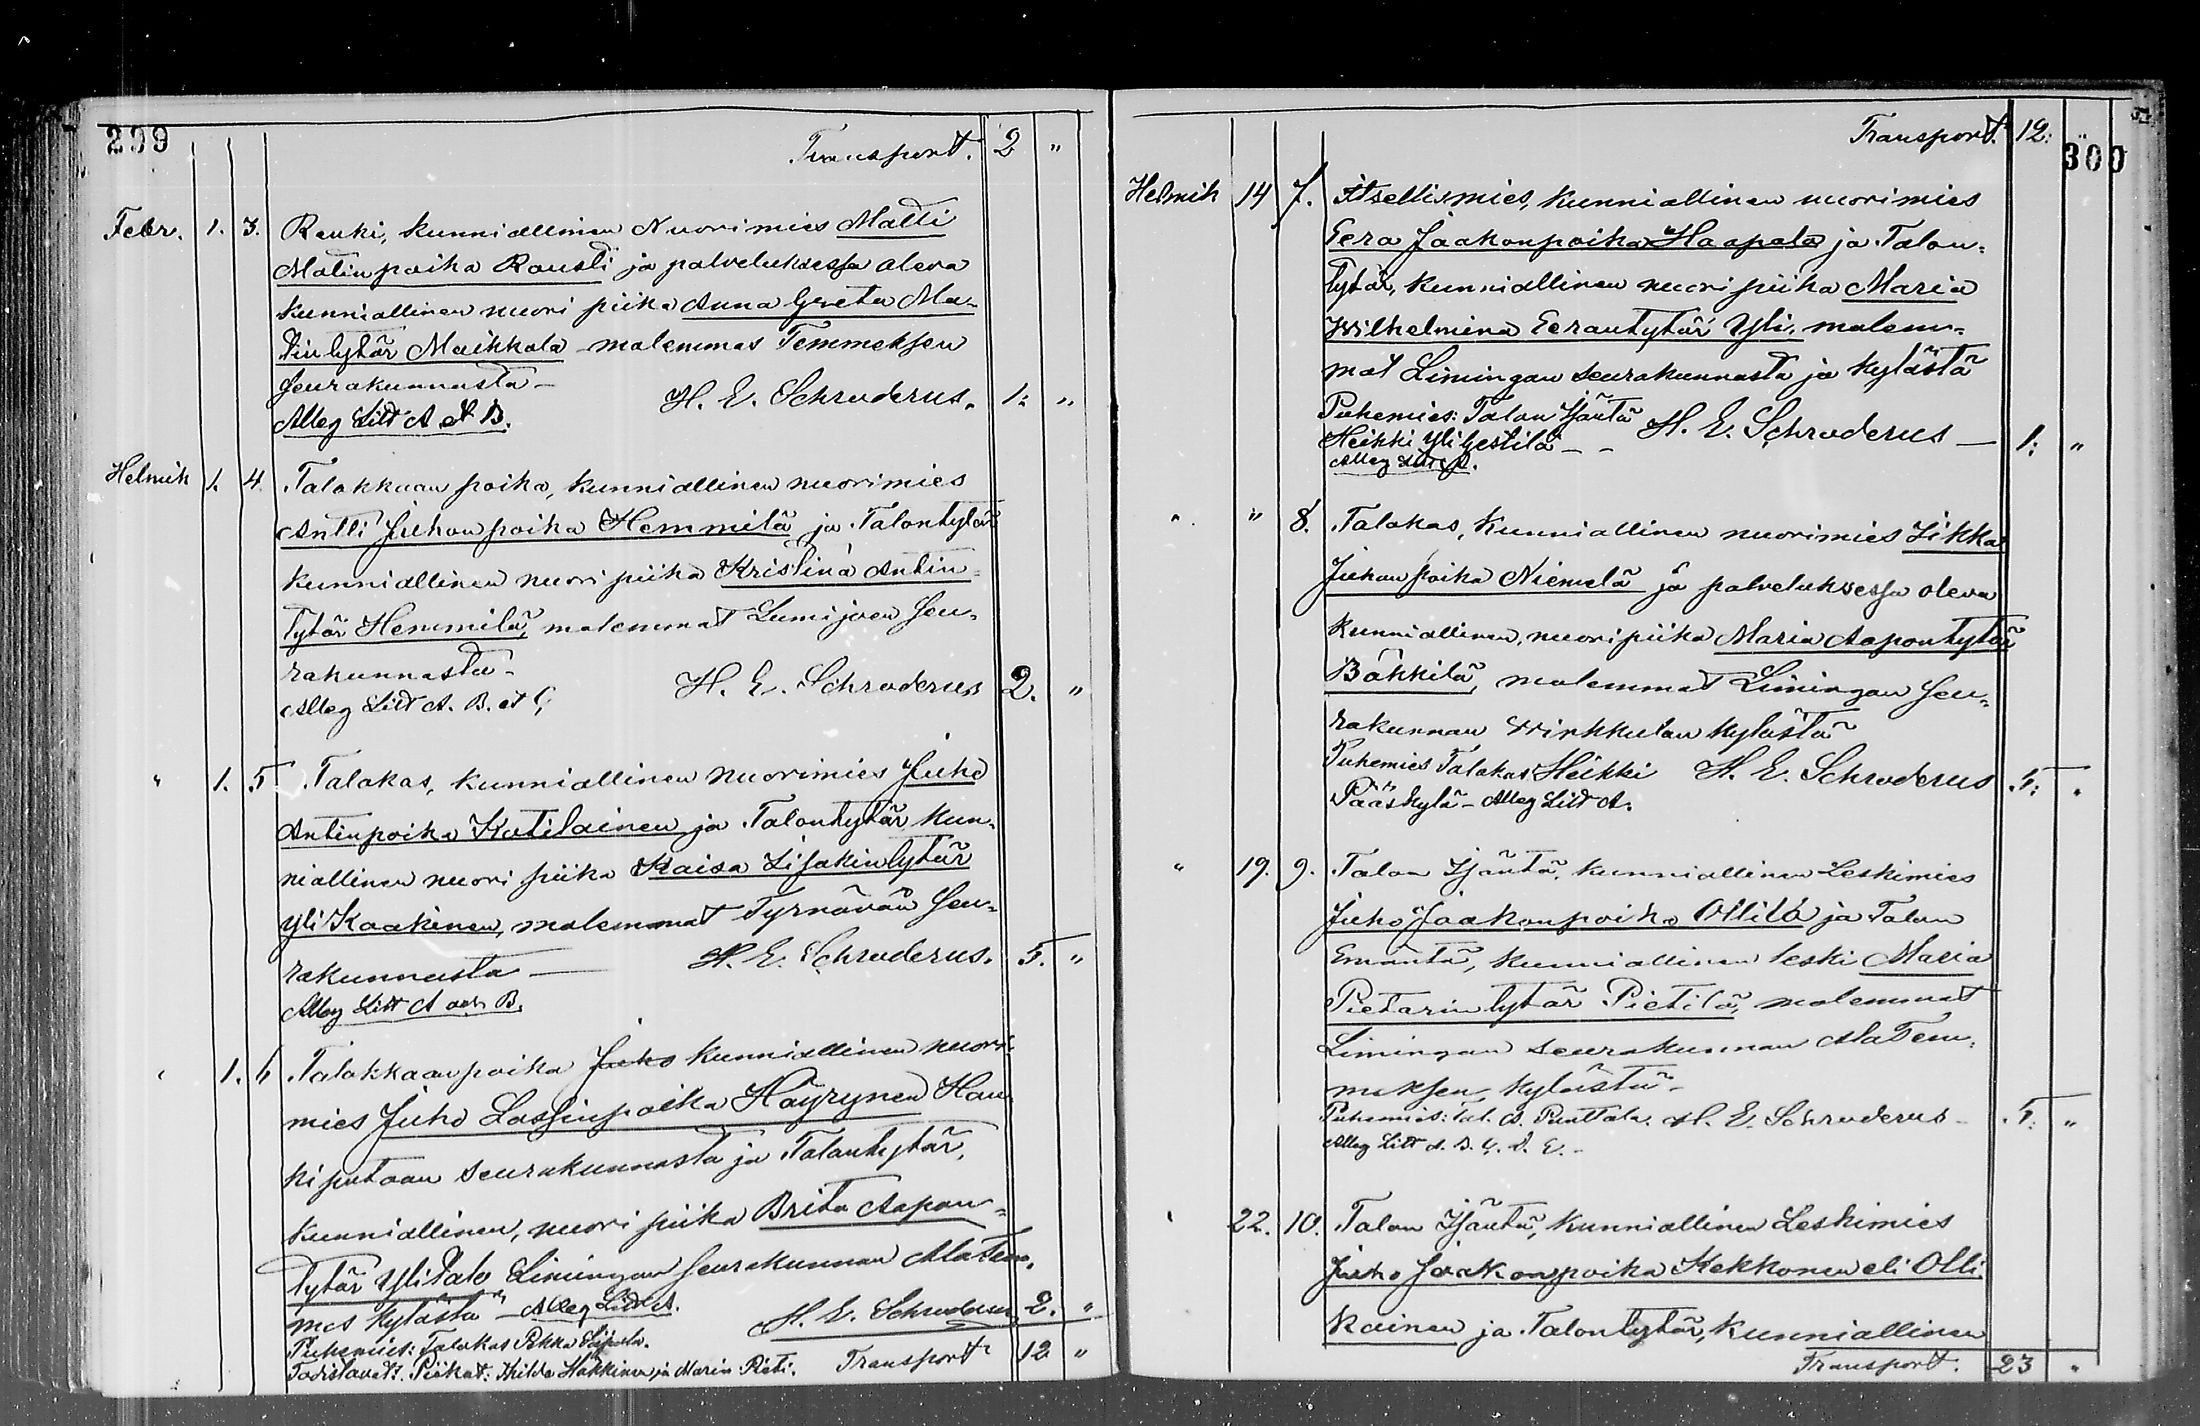 299
Transport. 2 "
Febr. 1. 3. Renki, kunniallinen Nuorimies Matti
Matinpoika Rousti ja palveluksessa oleva
kunniallinen nuori piika Anna Greta Ma-
tintytär Maikkola molemmas Temmeksen
seurakunnasta –
H. E. Schroderus. 1: "
Alleg Litt A et B.
Helmik 1. 4. Talokkaan poika, kunniallinen nuorimies
Antti Juhonpoika Hemmilä ja Talontytär
kunniallinen nuori piika Kristina Antin-
tytär Hemmilä, molemmat Lumijoen seu-
rakunnasta –
H. E. Schroderus 2. "
Alleg Litt A. B. et C.
" 1. 5 Talokas, kunniallinen nuorimies Juho
Antinpoika Katilainen ja Talontytär kun-
niallinen nuori piika Kaisa Lisakintytär
Yli Kaakinen, molemmat Tyrnävän seu-
rakunnasta —
H. E. Schroderus. 5. "
Alleg Litt A och B.
" 1. 6 Talokkaanpoika Juho kunniallinen nuori
mies Juho Lassinpoika Häyrynen Hau-
kiputaan seurakunnasta ja Talontytär,
kunniallinen, nuori piika Brita Aapon-
tytär Ylitalo Limingan seurakunnan AlaTem,
mes kylästä – Alleg Litt A.
H. E. Schroderus 2. "
Puhemies: Talokas Pekka
Todistavat: Piikat: Hilda Häkkinen ja Maria Pieti.
Transport 12 "
300
Transport. 12:
Helmik 14 7. Itsellismies, kunniallinen nuorimies
Eera Jaakonpoika Haapala ja Talon-
tytär, kunniallinen nuori piika Maria
Wilhelmina Eerantytär Yli, molem-
mat Limingan seurakunnasta ja kylästä
Puhemies: Talon Isäntä
H. E. Schroderus — 1: "
Heikki Yli Gestilä – –
Alleg Litt A.
" " 8. Talokas, kunniallinen nuorimies Iikka
Juhonpoika Niemelä ja palveluksessa oleva
kunniallinen, nuori piika Maria Aapontytär
Bäkkilä, molemmat Limingan seu-
rakunnan Wirkkulan kylästä
Puhemies Talokas Heikki
H. E. Schroderus 5: "
Pääskylä – Alleg Litt A.
" 19. 9. Talon Isäntä, kunniallinen Leskimies
Juho Jaakonpoika Ollila ja Talon
Emäntä, kunniallinen leski Maria
Pietarintytär Pietilä, molemmat
Limingan seurakunnan AlaTem,
meksen, kylästä –
Puhemies: tal. A. Punttala.
H. E. Schroderus – 5: "
Alleg Litt A. B. C. D. E. –
" 22. 10. Talon Isäntä, kunniallinen Leskimies
Juho Jaakonpoika Kekkonen eli Olli.
kainen ja Talontytär, kunniallinen
Transport. 23 "